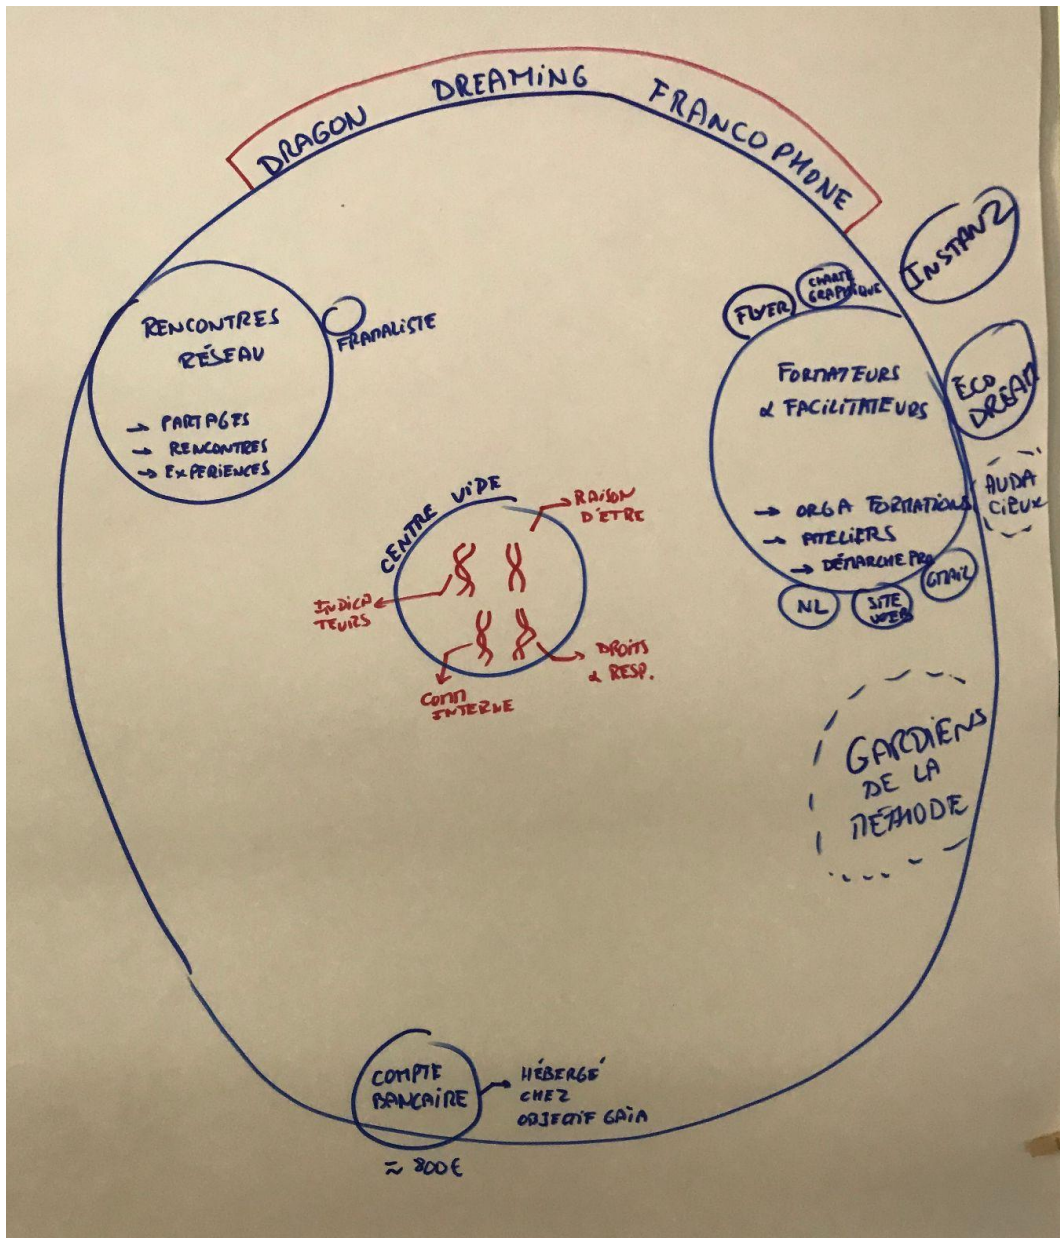 DRAGON DREAMING FRANCOPHONE
INSTANZ
RENCONTRES
RÉSEAU
→ PARTAGES
→ RENCONTRES
→ EXPÉRIENCES
FRAMALISTE
FLYER
CHARTE
GRAPHIQUE
FORMATEURS
& FACILITATEURS
→ ORGA FORMATIONS
→ ATELIERS
→ DÉMARCHE PRO
ECO
DREAM
AUDA
CIEUX
NL
SITE
WEB
GMAIL
CENTRE VIDE
RAISON
D'ÊTRE
INDICA
TEURS
COMM
INTERNE
DROITS
& RESP.
GARDIENS
DE LA
MÉTHODE
COMPTE
BANCAIRE
≈ 800€
HÉBERGÉ
CHEZ
OBJECTIF GAÏA